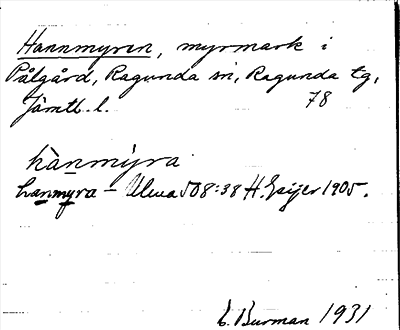 Hannmyren, myrmark i
Pålgård, Ragunda sn, Ragunda tg,
Jämtl. l. 78
hànmỳra
hanmyra – Ulma 508:38 H. Geijer 1905.
E. Burman 1931